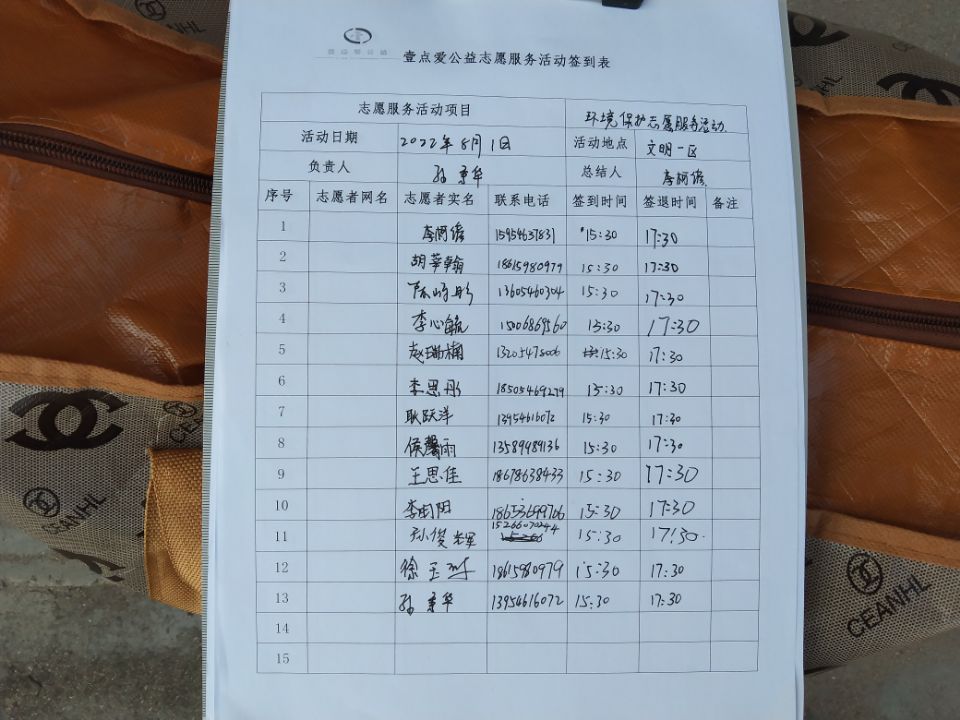 壹点爱公益志愿服务活动签到表
志愿服务活动项目 环境保护志愿服务活动
活动日期 2022年8月1日 活动地点 文明一区
负责人 孙 华 总结人 李
序号 志愿者网名 志愿者实名 联系电话 签到时间 签退时间 备注
1 李 15954637831 15:30 17:30
2 胡 翰 18615980979 15:30 17:30
3 陈 彤 13605460304 15:30 17:30
4 李心毓 15006869560 15:30 17:30
5 赵珊 13205475006 15:30 17:30
6 李思彤 18505469279 15:30 17:30
7 耿跃洋 13954616072 15:30 17:30
8 侯馨雨 13589989136 15:30 17:30
9 王思佳 18678638433 15:30 17:30
10 李 阳 18653699706 15:30 17:30
11 孙俊 15266070244 15:30 17:30
12 徐玉 18615980979 15:30 17:30
13 孙 华 13954616072 15:30 17:30
14
15
CEANHL
CEANHL
CEANHL